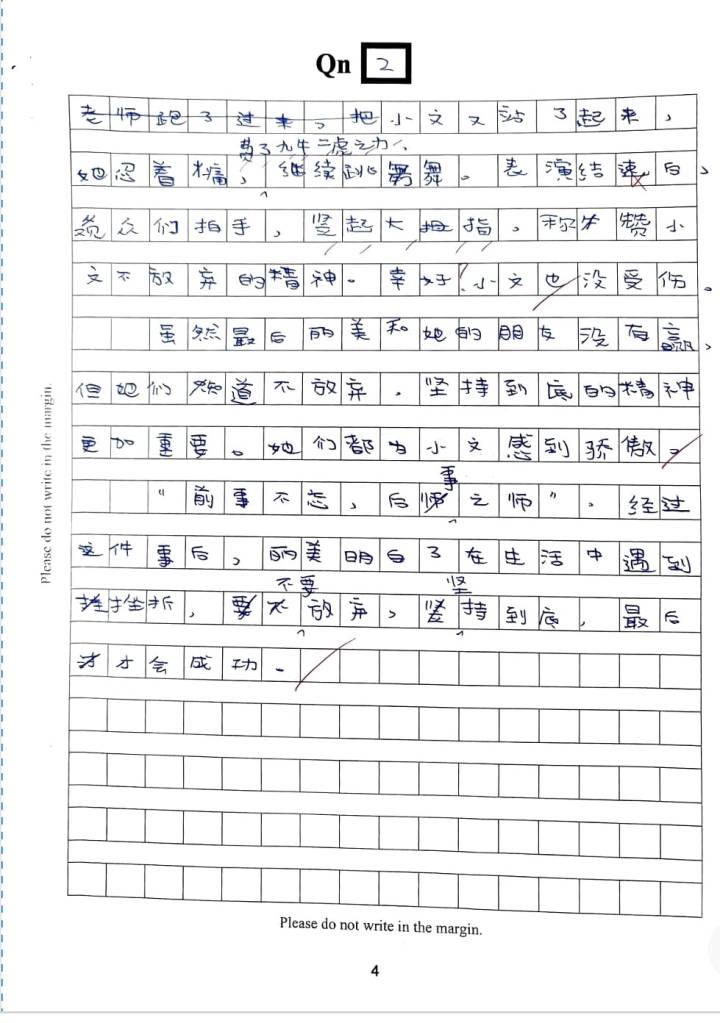 Qn 2
老师跑了过来，把小文又站了起来，
费了九牛二虎之力，
她忍着痛，继续跳舞。表演结速后，
观众们拍手，竖起大拇指，称赞小
文不放弃的精神。幸好！小文也没受伤。
虽然最后丽美和她的朋友没有赢，
但她们知道不放弃，坚持到底的精神
更加重要。她们都为小文感到骄傲。
事
“前事不忘，后师之师”。经过
这件事后，丽美明白了在生活中遇到
不要 坚
挫折，要不放弃，竖持到底，最后
才会成功。
Please do not write in the margin.
Please do not write in the margin.
4